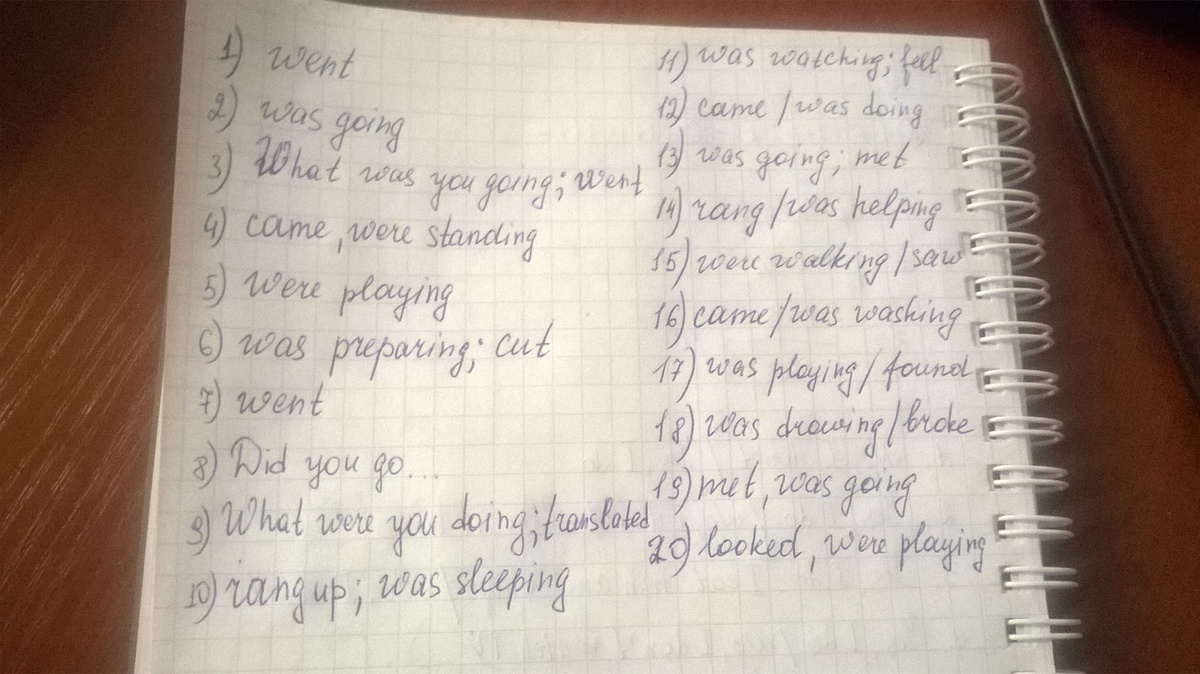 1) went
2) was going
3) What was you going; went
4) came, were standing
5) were playing
6) was preparing; cut
7) went
8) Did you go...
9) What were you doing; translated
10) rang up; was sleeping
11) was watching; fell
12) came / was doing
13) was going; met
14) rang / was helping
15) were walking / saw
16) came / was washing
17) was playing / found
18) was drowing / broke
19) met, was going
20) looked, were playing